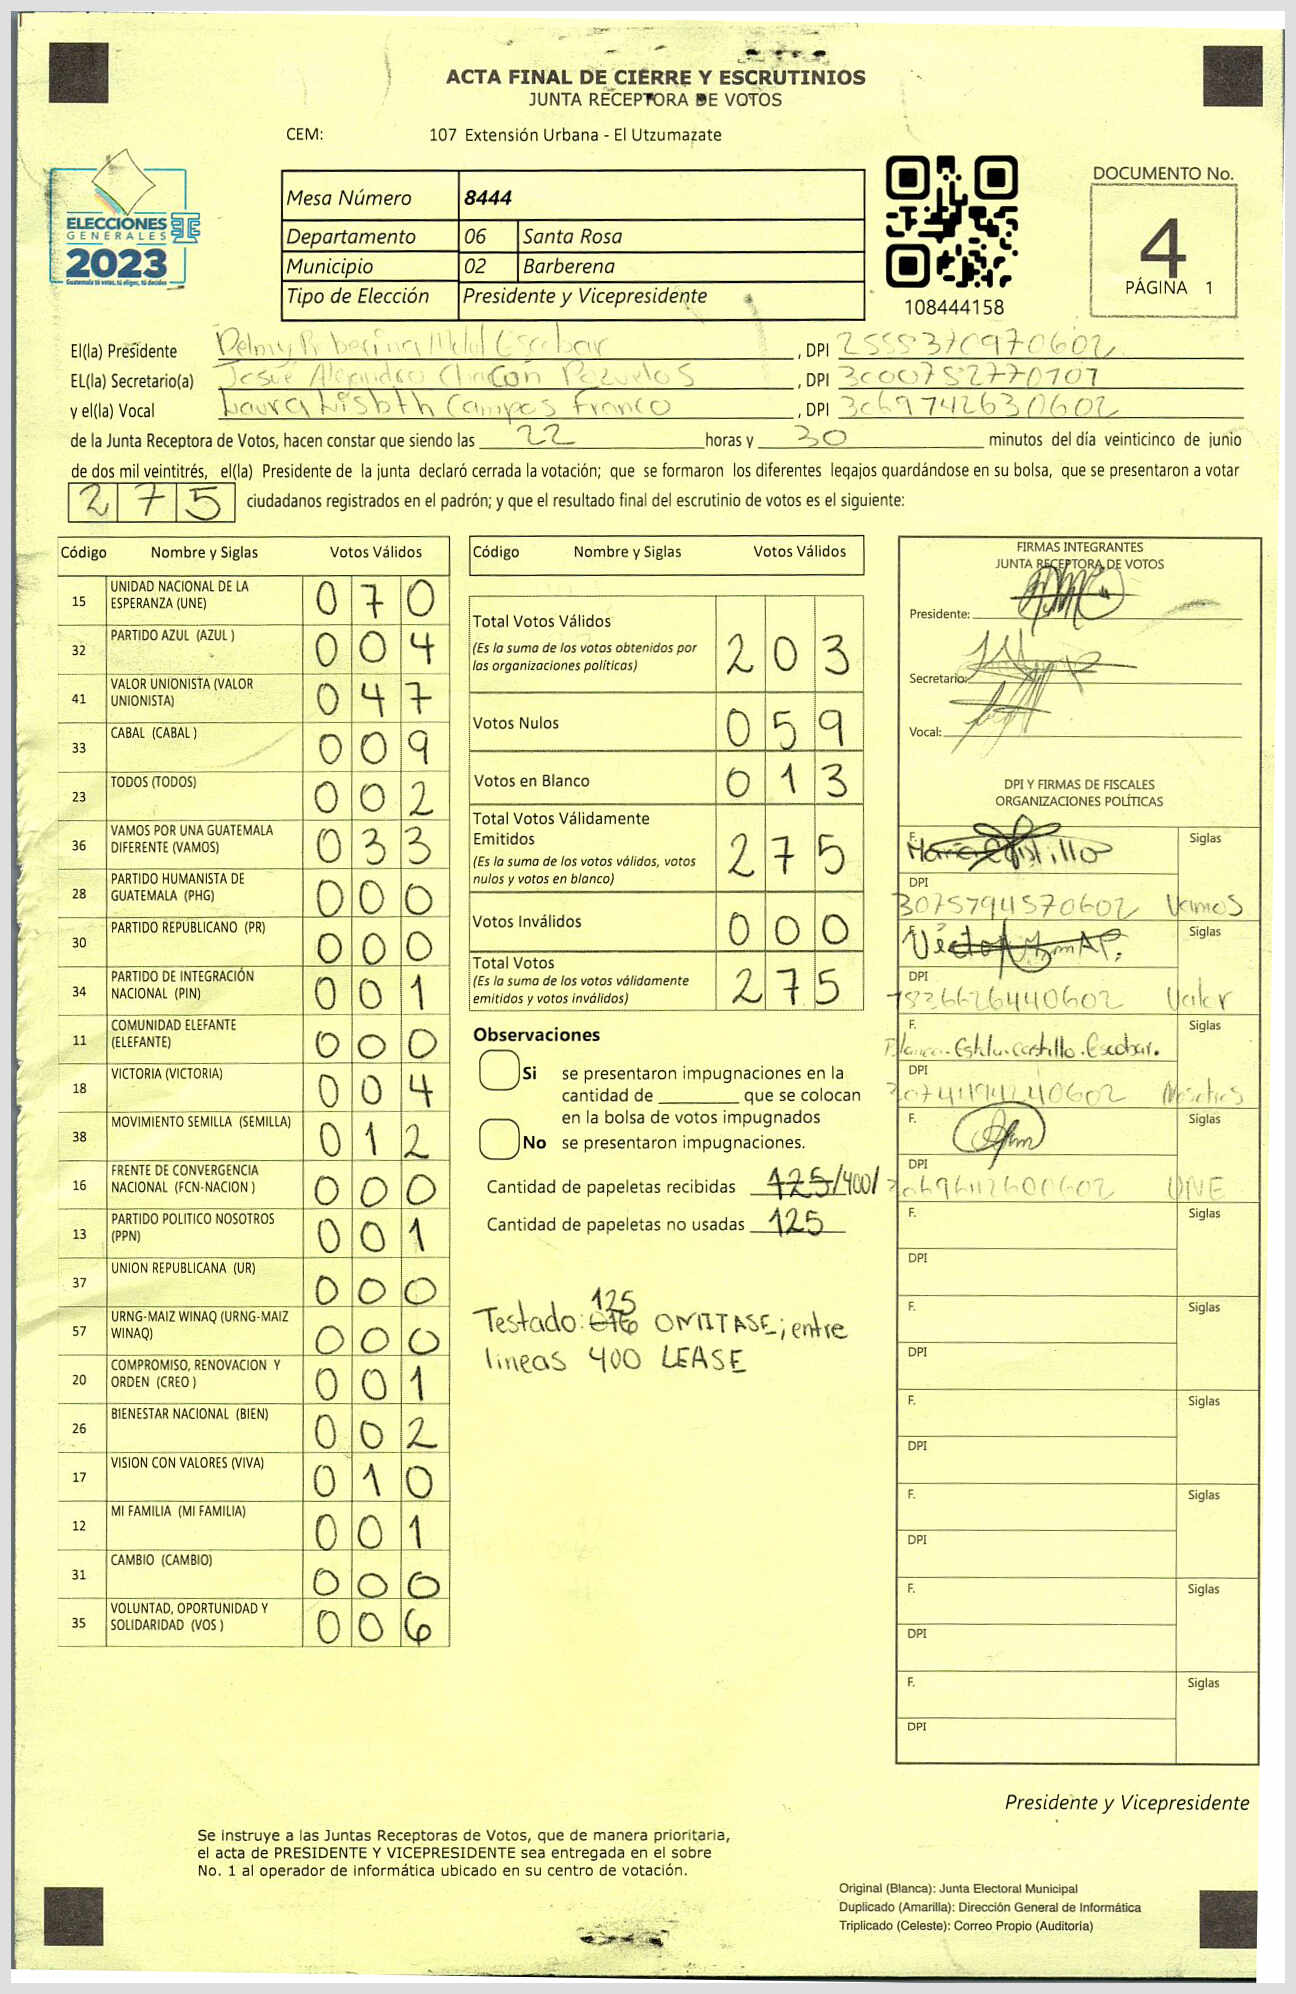 ACTA FINAL DE CIERRE Y ESCRUTINIOS
JUNTA RECEPTORA DE VOTOS
CEM: 107 Extensión Urbana - El Utzumazate
ELECCIONES
GENERALES
2023
Guatemala tú votas, tú eliges, tú decides
Mesa Número 8444
Departamento 06 Santa Rosa
Municipio 02 Barberena
Tipo de Elección Presidente y Vicepresidente
108444158
DOCUMENTO No.
4
PÁGINA 1
El(la) Presidente Escobar , DPI 2555370970602
EL(la) Secretario(a) Josue Alejandro Chacón Pozuelos , DPI 3000752770101
y el(la) Vocal Laura Lisbth Campos Franco , DPI 3069742630602
de la Junta Receptora de Votos, hacen constar que siendo las 22 horas y 30 minutos del día veinticinco de junio
de dos mil veintitrés, el(la) Presidente de la junta declaró cerrada la votación; que se formaron los diferentes legajos guardándose en su bolsa, que se presentaron a votar
275 ciudadanos registrados en el padrón; y que el resultado final del escrutinio de votos es el siguiente:
Código Nombre y Siglas Votos Válidos
15 UNIDAD NACIONAL DE LA ESPERANZA (UNE) 070
32 PARTIDO AZUL (AZUL ) 004
41 VALOR UNIONISTA (VALOR UNIONISTA) 047
33 CABAL (CABAL ) 009
23 TODOS (TODOS) 002
36 VAMOS POR UNA GUATEMALA DIFERENTE (VAMOS) 033
28 PARTIDO HUMANISTA DE GUATEMALA (PHG) 000
30 PARTIDO REPUBLICANO (PR) 000
34 PARTIDO DE INTEGRACIÓN NACIONAL (PIN) 001
11 COMUNIDAD ELEFANTE (ELEFANTE) 000
18 VICTORIA (VICTORIA) 004
38 MOVIMIENTO SEMILLA (SEMILLA) 012
16 FRENTE DE CONVERGENCIA NACIONAL (FCN-NACION ) 000
13 PARTIDO POLITICO NOSOTROS (PPN) 001
37 UNION REPUBLICANA (UR) 000
57 URNG-MAIZ WINAQ (URNG-MAIZ WINAQ) 000
20 COMPROMISO, RENOVACION Y ORDEN (CREO ) 001
26 BIENESTAR NACIONAL (BIEN) 002
17 VISION CON VALORES (VIVA) 010
12 MI FAMILIA (MI FAMILIA) 001
31 CAMBIO (CAMBIO) 000
35 VOLUNTAD, OPORTUNIDAD Y SOLIDARIDAD (VOS ) 006
Código Nombre y Siglas Votos Válidos
Total Votos Válidos 203
(Es la suma de los votos obtenidos por
las organizaciones políticas)
Votos Nulos 059
Votos en Blanco 013
Total Votos Válidamente
Emitidos 275
(Es la suma de los votos válidos, votos
nulos y votos en blanco)
Votos Inválidos 000
Total Votos 275
(Es la suma de los votos válidamente
emitidos y votos inválidos)
Observaciones
Si se presentaron impugnaciones en la
cantidad de ________ que se colocan
en la bolsa de votos impugnados
No se presentaron impugnaciones.
Cantidad de papeletas recibidas 125/400/
Cantidad de papeletas no usadas 125
125
Testado: OMITASE; entre
lineas 400 LEASE
FIRMAS INTEGRANTES
JUNTA RECEPTORA DE VOTOS
Presidente:
Secretario:
Vocal:
DPI Y FIRMAS DE FISCALES
ORGANIZACIONES POLÍTICAS
F. Maria Castillo Siglas
DPI
3075794570602 Vamos
F. Siglas
DPI
1836626440602 Valor
F. Blanca Estela Castillo Escobar. Siglas
DPI
Nosotros
F. Siglas
DPI
UNE
F. Siglas
DPI
F. Siglas
DPI
F. Siglas
DPI
F. Siglas
DPI
F. Siglas
DPI
F. Siglas
DPI
Presidente y Vicepresidente
Se instruye a las Juntas Receptoras de Votos, que de manera prioritaria,
el acta de PRESIDENTE Y VICEPRESIDENTE sea entregada en el sobre
No. 1 al operador de informática ubicado en su centro de votación.
Original (Blanca): Junta Electoral Municipal
Duplicado (Amarilla): Dirección General de Informática
Triplicado (Celeste): Correo Propio (Auditoria)